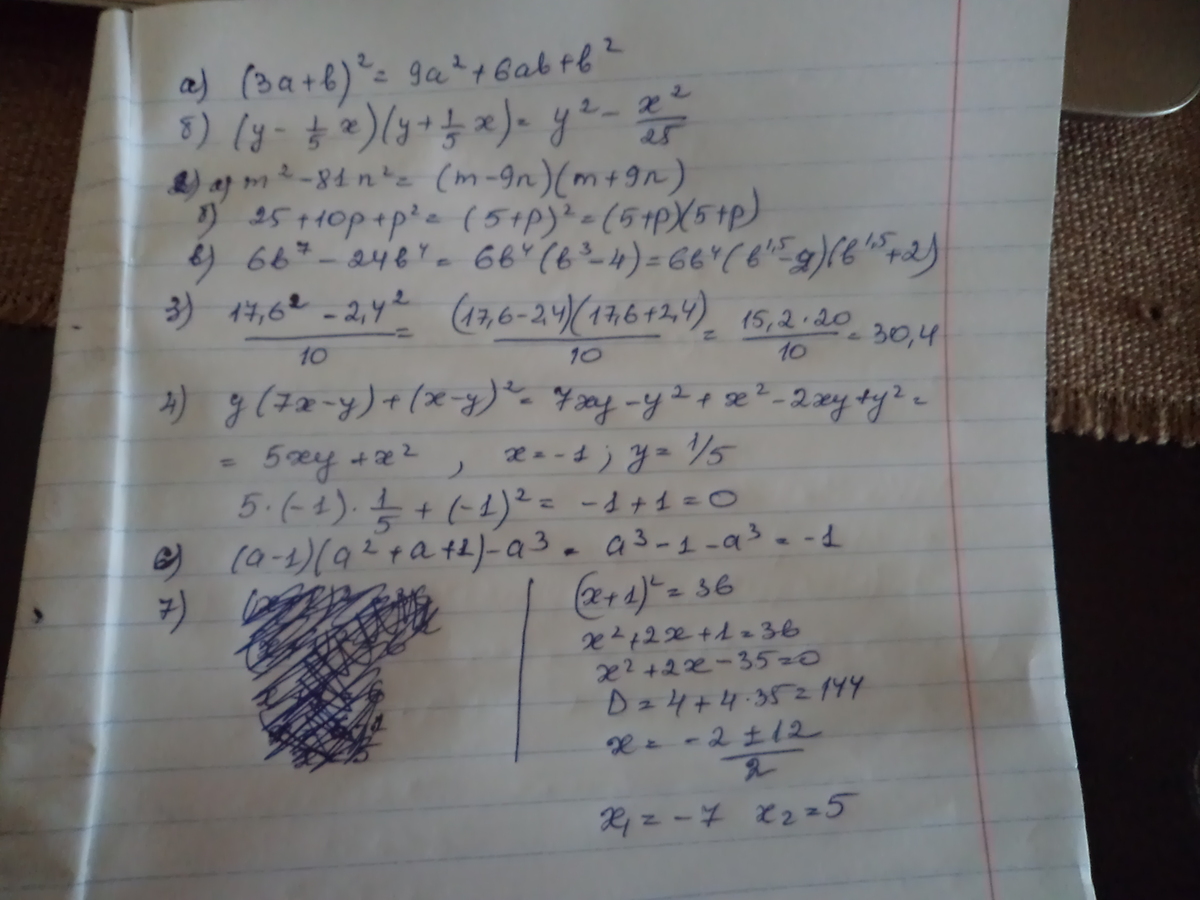 а) (3a+b)² = 9a²+6ab+b²
б) (y - 1/5 x)(y + 1/5 x) = y² - x²/25
2) а) m² - 81n² = (m-9n)(m+9n)
б) 25+10p+p² = (5+p)² = (5+p)(5+p)
в) 6b⁷ - 24b⁴ = 6b⁴(b³-4) = 6b⁴(b^1,5-2)(b^1,5+2)
3) (17,6² - 2,4²)/10 = (17,6-2,4)(17,6+2,4)/10 = 15,2·20/10 = 30,4
4) y(7x-y)+(x-y)² = 7xy-y²+x²-2xy+y² =
= 5xy+x² , x=-1; y=1/5
5·(-1)·1/5+(-1)² = -1+1=0
6) (a-1)(a²+a+1)-a³ = a³-1-a³ = -1
7)
(x+1)²=36
x²+2x+1=36
x²+2x-35=0
D=4+4·35=144
x = (-2±12)/2
x₁=-7 x₂=5